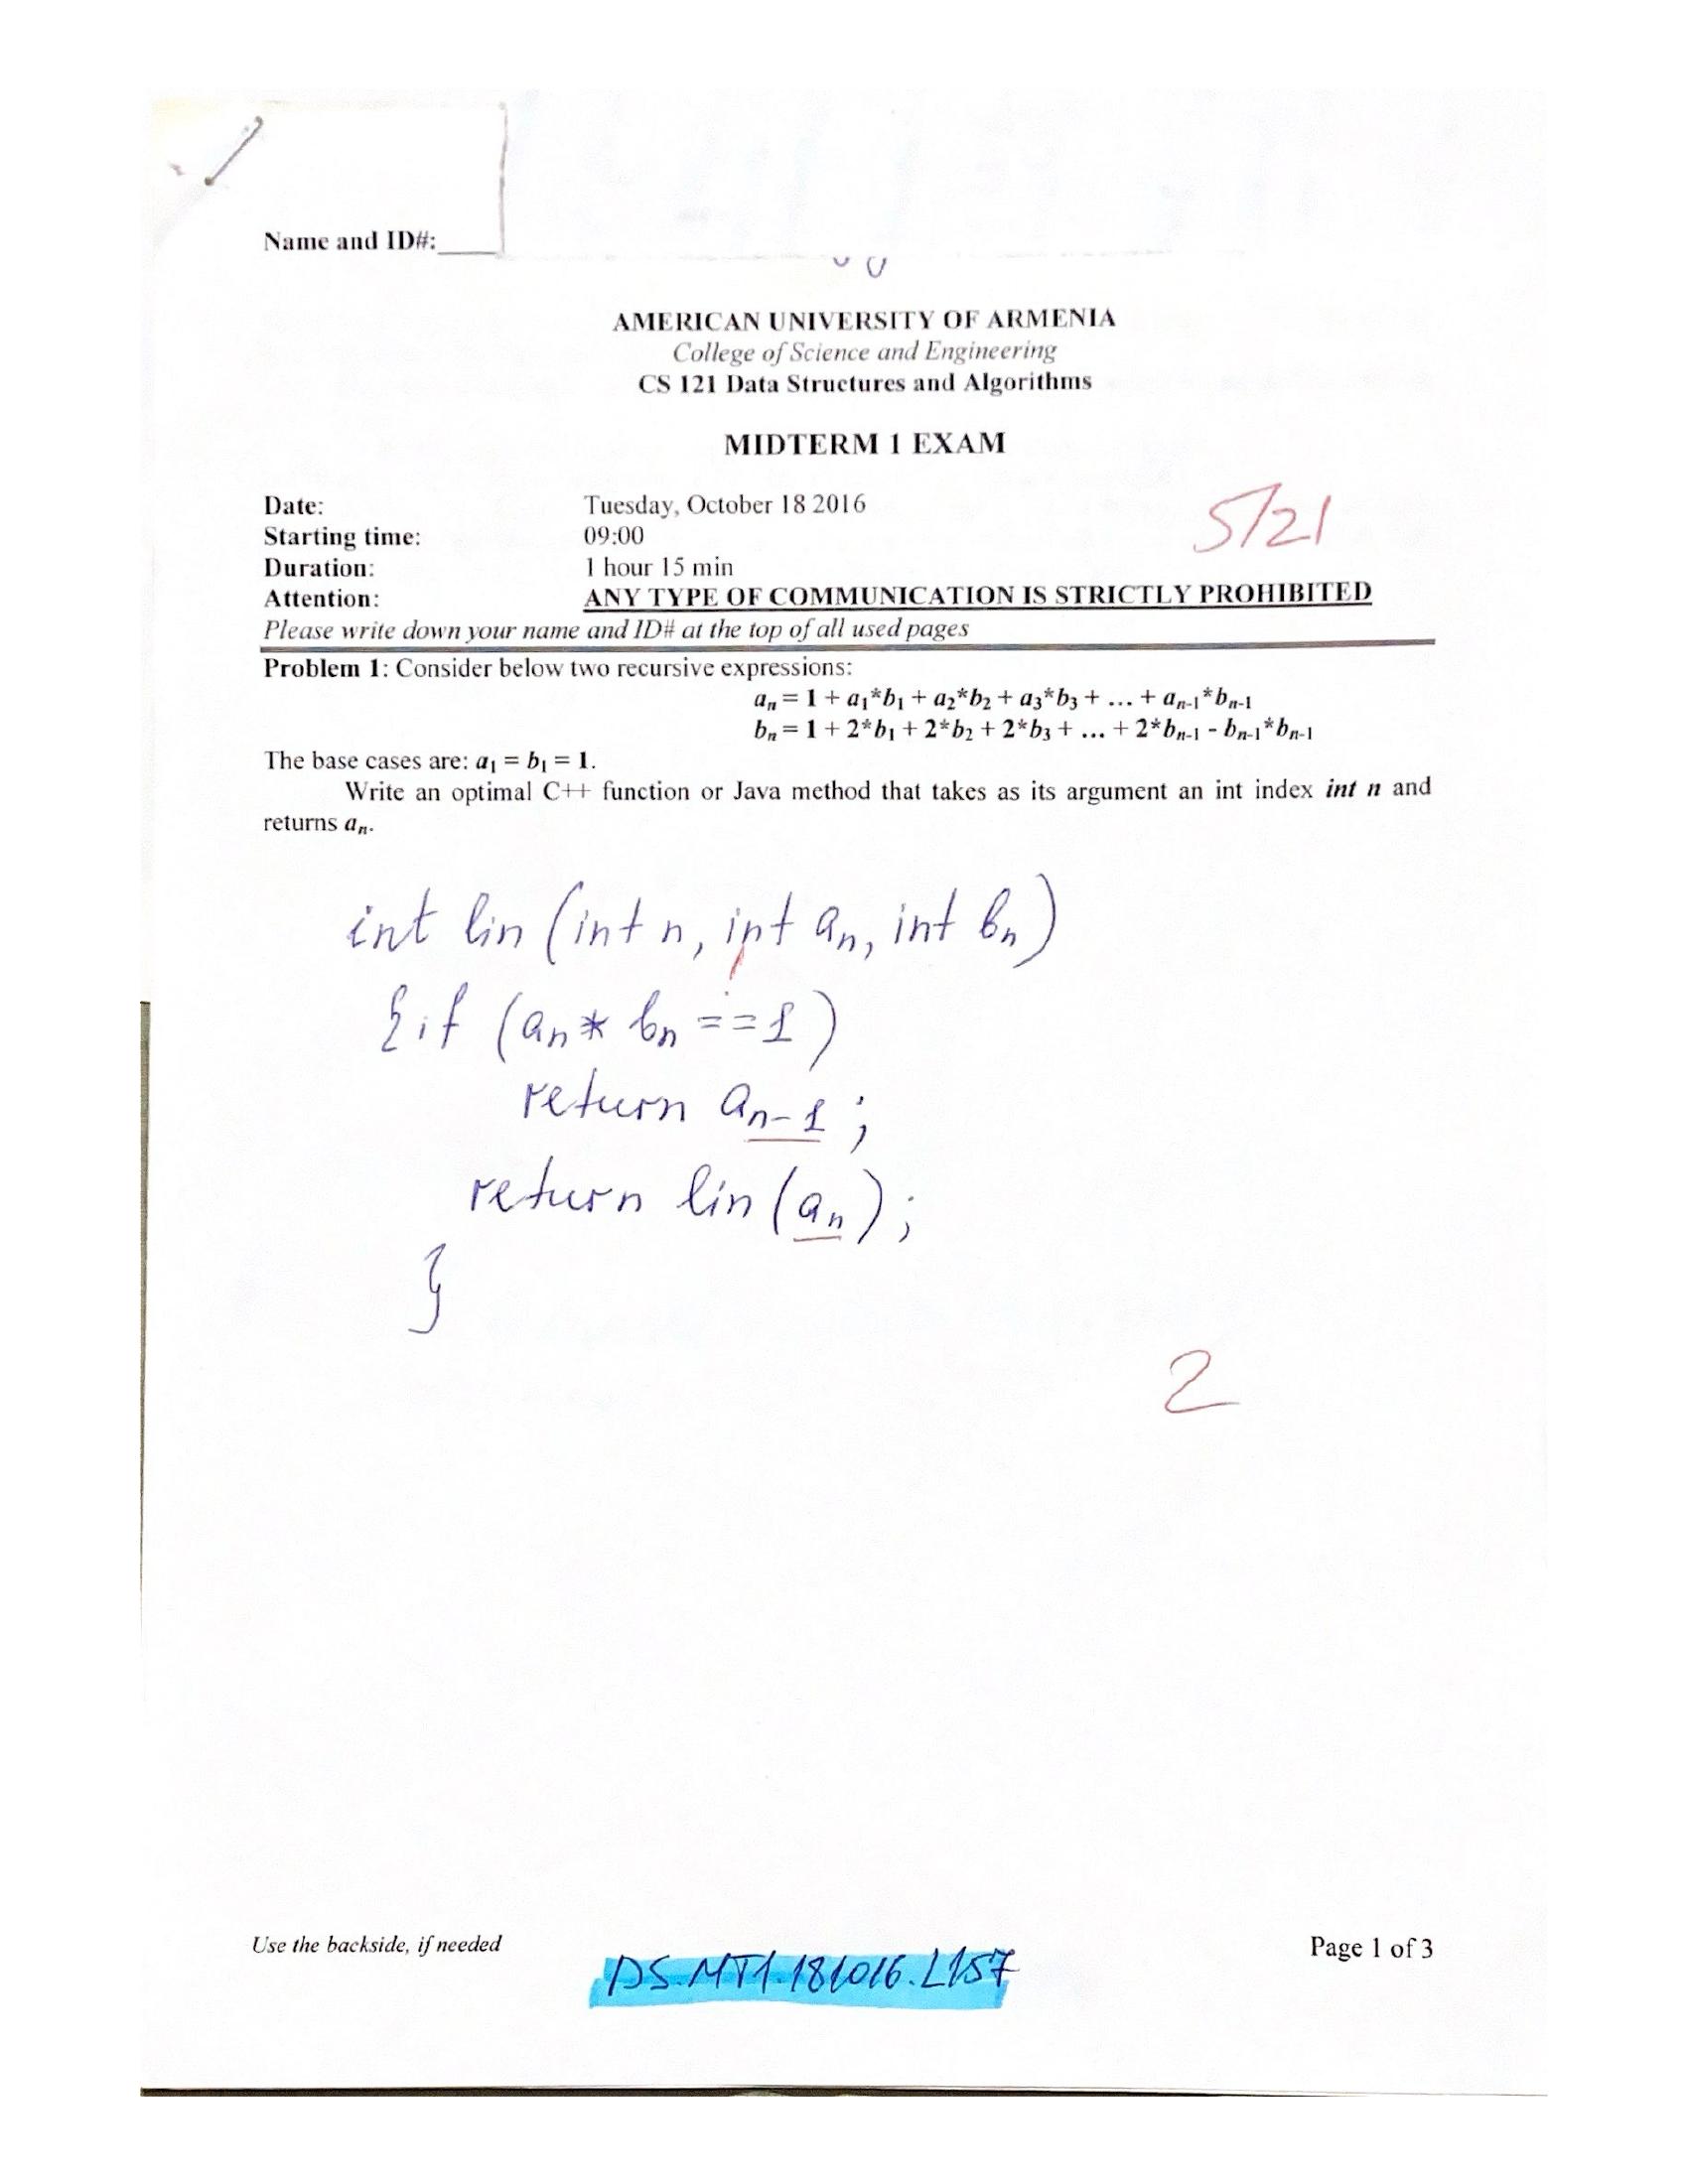 Name and ID#:
AMERICAN UNIVERSITY OF ARMENIA
College of Science and Engineering
CS 121 Data Structures and Algorithms
MIDTERM 1 EXAM
Date: Tuesday, October 18 2016
5/21
Starting time: 09:00
Duration: 1 hour 15 min
Attention: ANY TYPE OF COMMUNICATION IS STRICTLY PROHIBITED
Please write down your name and ID# at the top of all used pages
Problem 1: Consider below two recursive expressions:
aₙ = 1 + a₁*b₁ + a₂*b₂ + a₃*b₃ + ... + aₙ₋₁*bₙ₋₁
bₙ = 1 + 2*b₁ + 2*b₂ + 2*b₃ + ... + 2*bₙ₋₁ - bₙ₋₁*bₙ₋₁
The base cases are: a₁ = b₁ = 1.
Write an optimal C++ function or Java method that takes as its argument an int index int n and
returns aₙ.
int lin (int n, int aₙ, int bₙ)
{if (aₙ * bₙ ==1)
return aₙ₋₁;
return lin (aₙ);
}
2
Use the backside, if needed
Page 1 of 3
DS.MT1.181016.L157